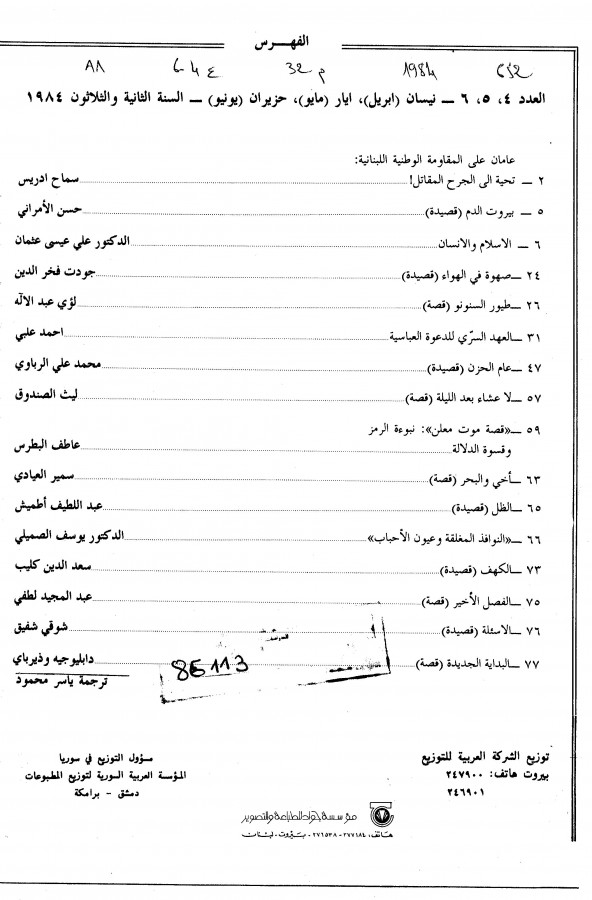 الفهرس
652 1984 م32 ع4-6 AA
العدد ٤، ٥، ٦ ــ نيسان (ابريل)، ايار (مايو)، حزيران (يونيو) ــ السنة الثانية والثلاثون ١٩٨٤
عامان على المقاومة الوطنية اللبنانية:
٢ ــ تحية الى الجرح المقاتل! سماح ادريس
٥ ــ بيروت الدم (قصيدة) حسن الأمراني
٦ ــ الاسلام والانسان الدكتور علي عيسى عثمان
٢٤ ــ صهوة في الهواء (قصيدة) جودت فخر الدين
٢٦ ــ طيور السنونو (قصة) لؤي عبد الاله
٣١ ــ العهد السرّي للدعوة العباسية احمد علبي
٤٧ ــ عام الحزن (قصيدة) محمد علي الرباوي
٥٧ ــ لا عشاء بعد الليلة (قصة) ليث الصندوق
٥٩ ــ «قصة موت معلن»: نبوءة الرمز
وقسوة الدلالة عاطف البطرس
٦٣ ــ أخي والبحر (قصة) سمير العيادي
٦٥ ــ الظل (قصيدة) عبد اللطيف أطميش
٦٦ ــ «النوافذ المغلقة وعيون الأحباب» الدكتور يوسف الصميلي
٧٣ ــ الكهف (قصيدة) سعد الدين كليب
٧٥ ــ الفصل الأخير (قصة) عبد المجيد لطفي
٧٦ ــ الاسئلة (قصيدة) شوقي شفيق
٧٧ ــ البداية الجديدة (قصة) دابليوجيه وذيرباي
ترجمة ياسر محمود
85113
توزيع الشركة العربية للتوزيع
بيروت هاتف: ٢٤٧٩٠٠
٢٤٦٩٠١
مسؤول التوزيع في سوريا
المؤسسة العربية السورية لتوزيع المطبوعات
دمشق - برامكة
مؤسسة جواد للطباعة والتصوير
هاتف: ٢٧٧١٨٤ - ٢٧٦٥٣٨ - بيروت - لبنان